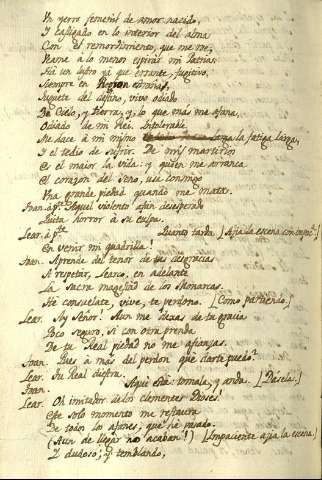 Un yerro femenil de amor nacido,
Y castigado en lo interior del alma
Con el remordimiento, que me,
Veame à lo menos espirar mi Patria.
Hà un lustro ya que errante, fugitivo,
Siempre en Region estrañas,
Juguete del destino, vivo odiado
De Cielo, y tierra, y, lo que más me afana,
Odiado de mi Rei. Intolerable
Me hace à mi mismo la fatiga larga,
Y el tedio de sufrir. De mis martirios
Es el maior la vida: y quien me arranca
El corazon del seno, usa conmigo
Una grande piedad quando me mata.
Ivan. à pte. Aquel violento afan desesperado
Quita horror à su culpa.
Lear. à pte. Quanto tarda [Azia la escena con
En venir mi quadrilla!
Ivan. Aprende del tenor de tus desgracias
A respetar, Learco, en adelante
La sacra magestad de los Monarcas.
Hé consuelate, vive, te perdono. [Como partiendo.]
Lear. Ay Señor! Aun me dexas de tu gracia
Poco seguro, si con otra prenda
De tu Real piedad no me afianzas.
Ivan. Pues à más del perdon que darte puedo?
Lear. Tu Real diestra.
Ivan. Aqui está tomala, y anda. [Dasela.]
Lear. Oh imitador de los clementes Dioses!
Este solo momento me restaura
De todos lo afanes, que hé pasado.
(Aun de llegar no acaban!) [Impaciente azia la escena.]
Y dudoso, y temblando,